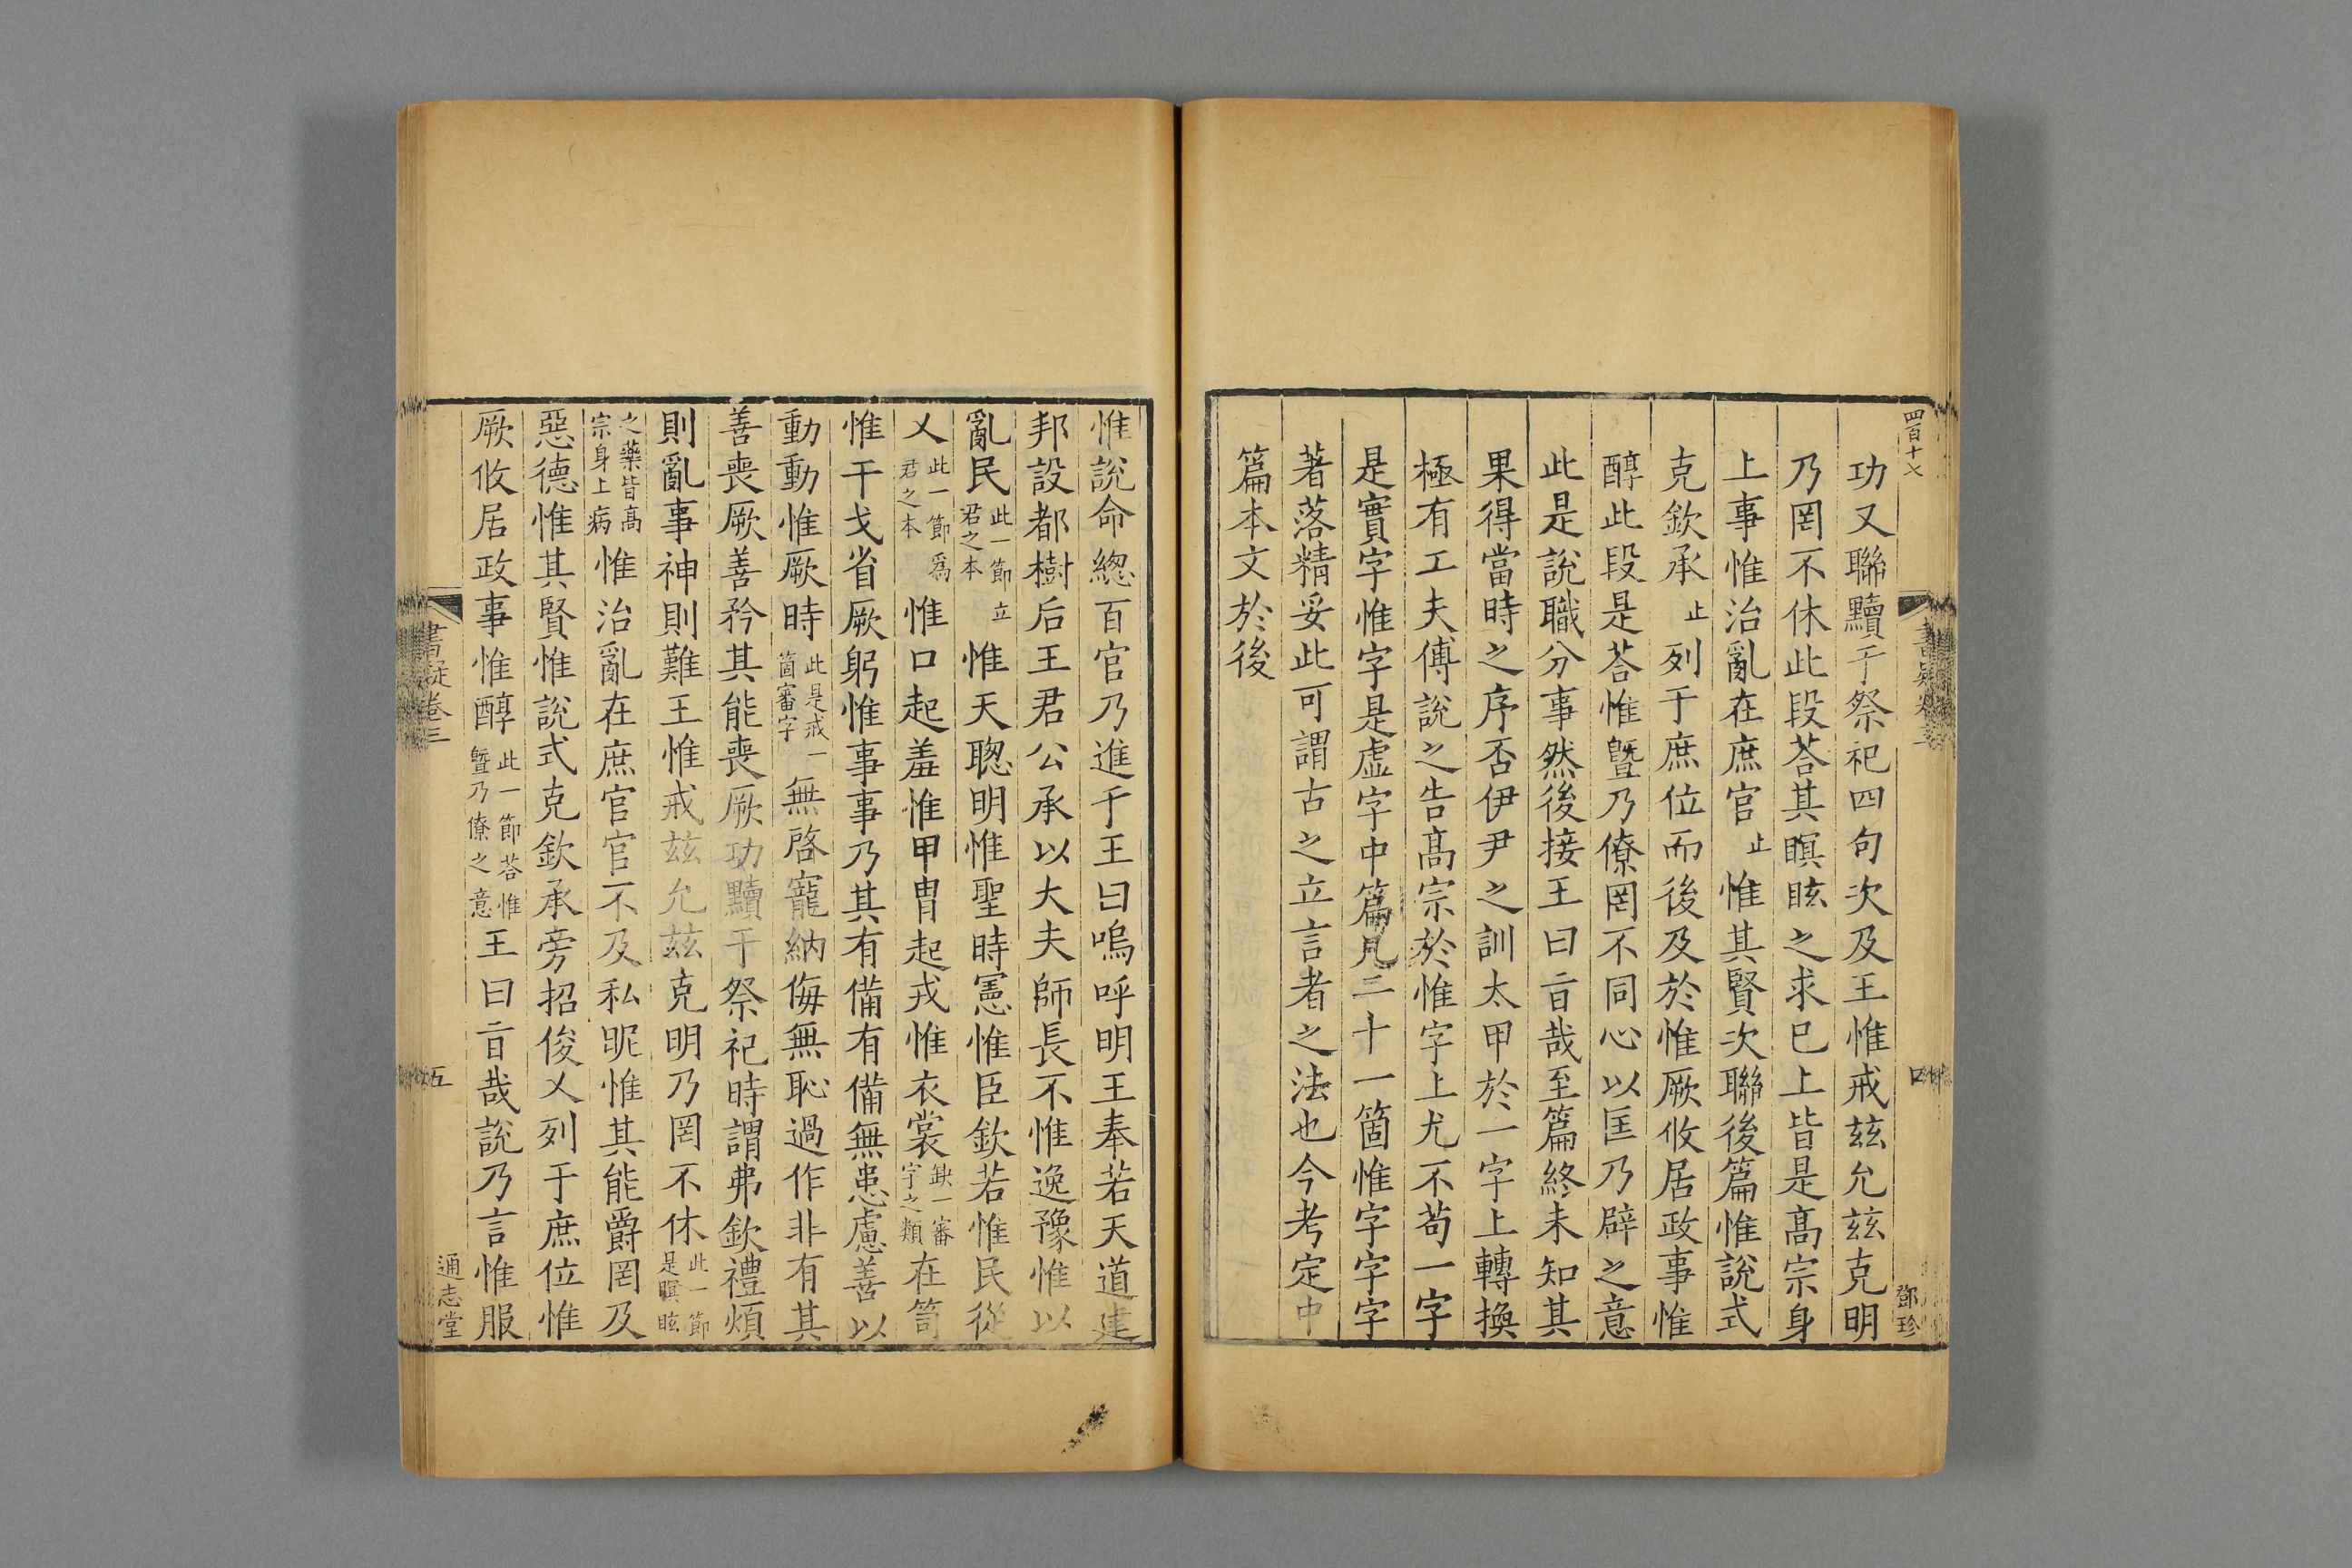 四百十七
書疑卷三
四
鄧珍
功又聯黷于祭祀四句次及王惟戒玆允玆克明
乃罔不休此段荅其瞑眩之求已上皆是髙宗身
上事惟治亂在庶官止惟其賢次聯後篇惟說式
克欽承止列于庶位而後及於惟厥攸居政事惟
醇此段是荅惟曁乃僚罔不同心以匡乃辟之意
此是說職分事然後接王曰㫖哉至篇終未知其
果得當時之序否伊尹之訓太甲於一字上轉換
極有工夫傅說之告髙宗於惟字上尤不苟一字
是實字惟字是虛字中篇凡二十一箇惟字字字
著落精妥此可謂古之立言者之法也今考定中
篇本文於後
惟說命緫百官乃進于王曰嗚呼明王奉若天道建
邦設都樹后王君公承以大夫師長不惟逸豫惟以
亂民此一節立君之本惟天聦明惟聖時憲惟臣欽若惟民從
乂此一節爲君之本惟口起羞惟甲冑起戎惟衣裳缺一審字之類在笥
惟干戈省厥躬惟事事乃其有備有備無患慮善以
動動惟厥時此是戒一箇審字無啓寵納侮無恥過作非有其
善喪厥善矜其能喪厥功黷于祭祀時謂弗欽禮煩
則亂事神則難王惟戒玆允玆克明乃罔不休此一節是瞑眩
之藥皆髙宗身上病惟治亂在庶官官不及私昵惟其能爵罔及
惡德惟其賢惟說式克欽承旁招俊乂列于庶位惟
厥攸居政事惟醇此一節荅惟曁乃僚之意王曰㫖哉說乃言惟服
書疑卷三
五
通志堂